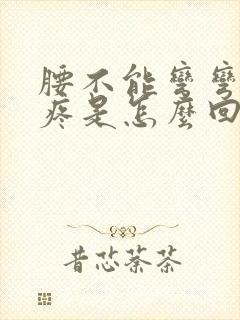 腰不能彎彎
疼是怎麼回
昔芯荼茶